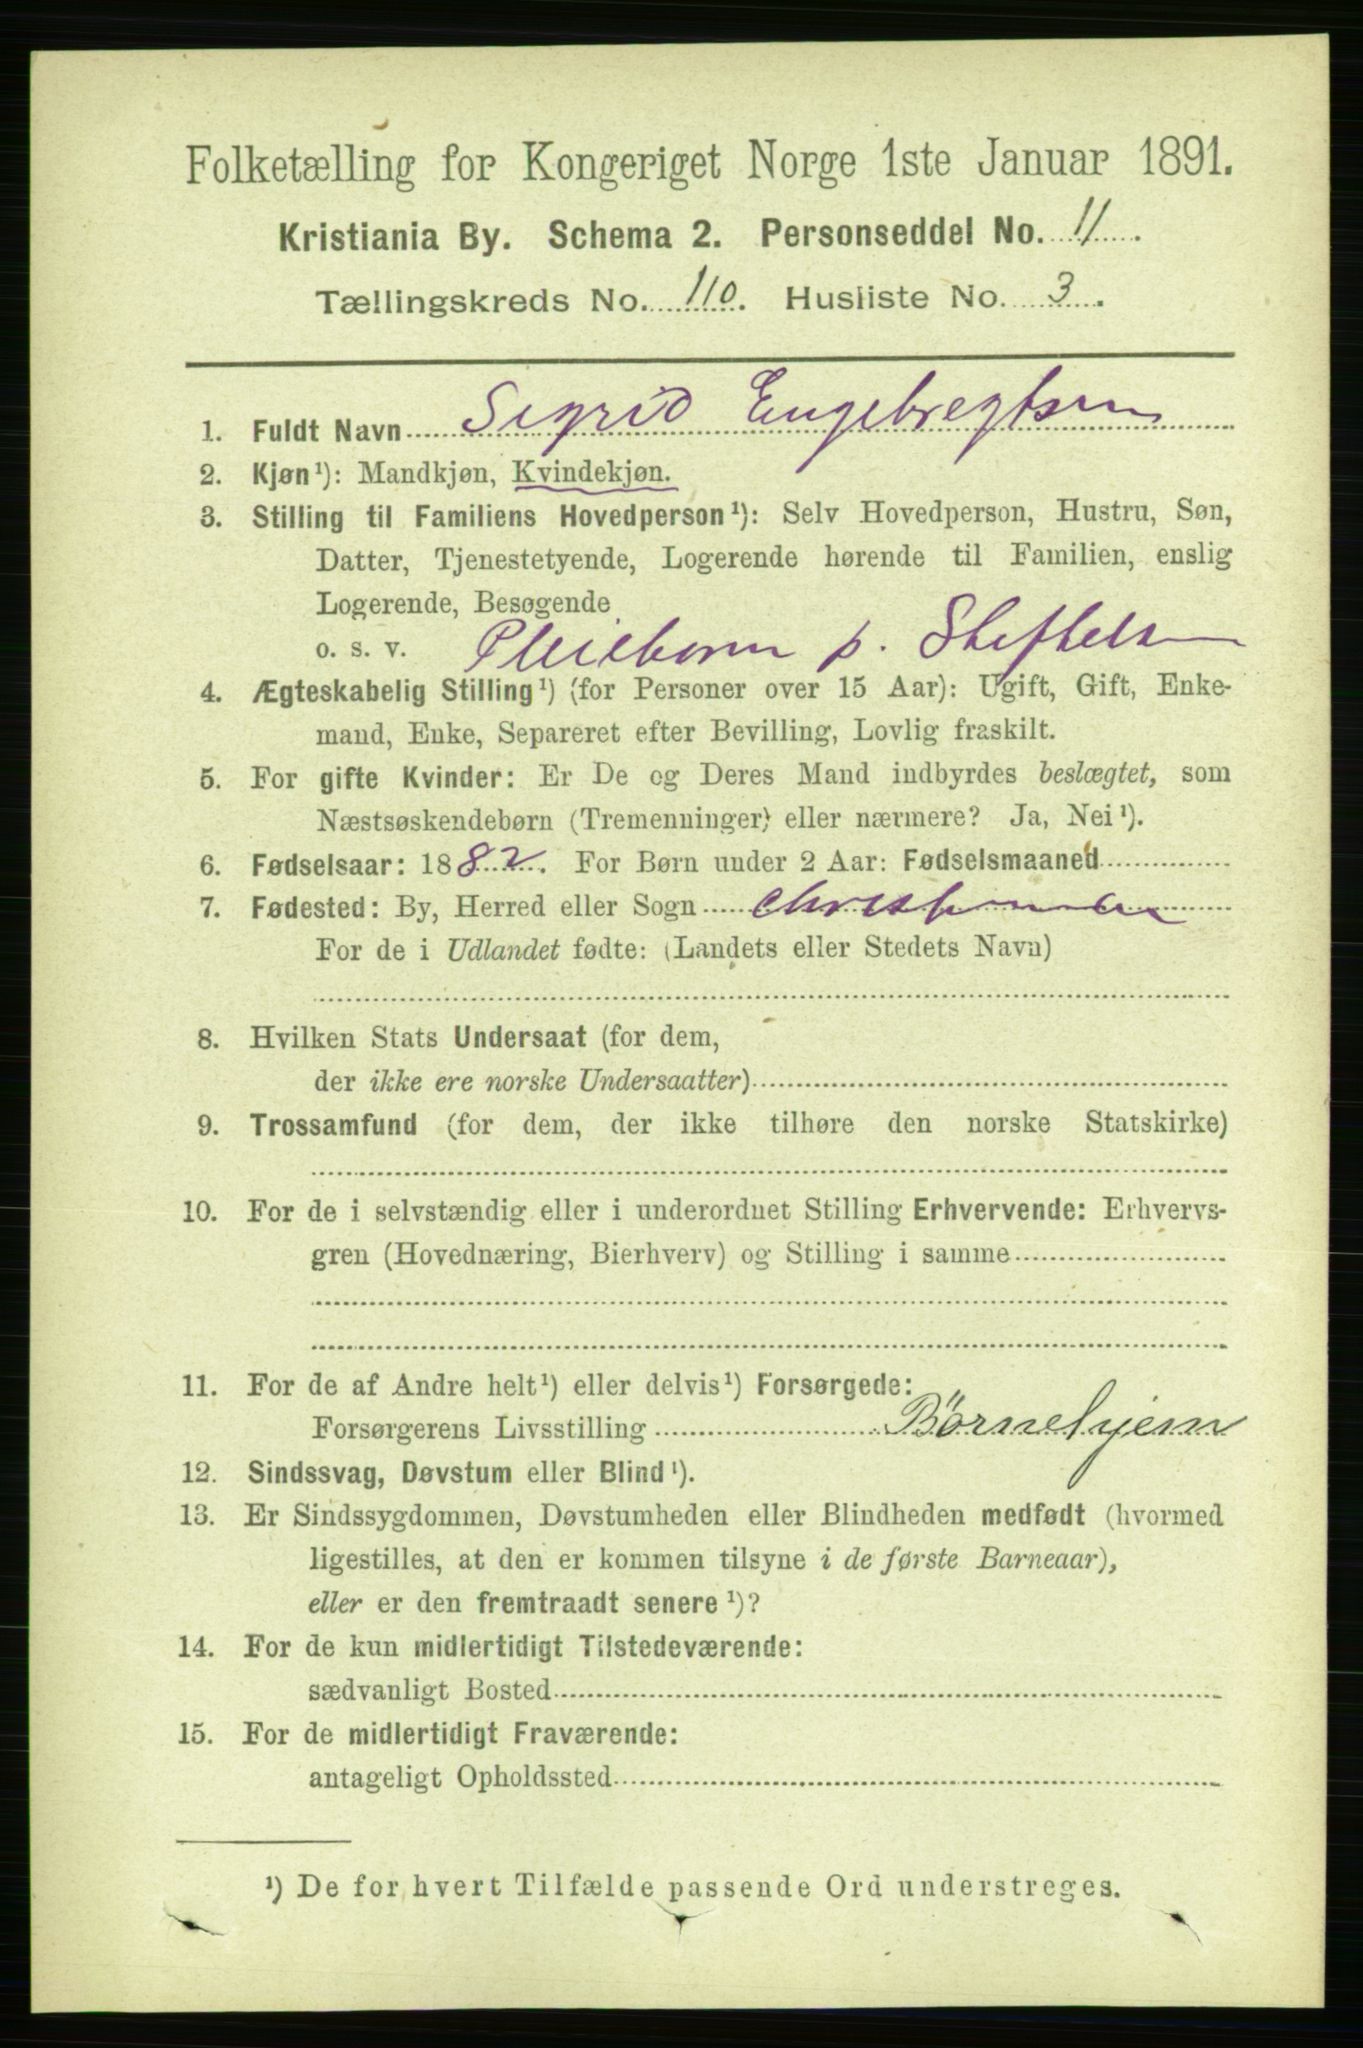 Folketælling for Kongeriget Norge 1ste Januar 1891.
Kristiania By. Schema 2. Personseddel No. 11.
Tællingskreds No. 110. Husliste No. 3.
1. Fuldt Navn Sigrid Engebregtsen
2. Kjøn¹): Mandkjøn, Kvindekjøn.
3. Stilling til Familiens Hovedperson¹): Selv Hovedperson, Hustru, Søn,
Datter, Tjenestetyende, Logerende hørende til Familien, enslig
Logerende, Besøgende
o. s. v. Pleiebarn p. Stiftels
4. Ægteskabelig Stilling¹) (for Personer over 15 Aar): Ugift, Gift, Enke-
mand, Enke, Separeret efter Bevilling, Lovlig fraskilt.
5. For gifte Kvinder: Er De og Deres Mand indbyrdes beslægtet, som
Næstsøskendebørn (Tremenninger) eller nærmere? Ja, Nei¹).
6. Fødselsaar: 1882. For Børn under 2 Aar: Fødselsmaaned
7. Fødested: By, Herred eller Sogn Christiania
For de i Udlandet fødte: (Landets eller Stedets Navn)
8. Hvilken Stats Undersaat (for dem,
der ikke ere norske Undersaatter)
9. Trossamfund (for dem, der ikke tilhøre den norske Statskirke)
10. For de i selvstændig eller i underordnet Stilling Erhvervende: Erhvervs-
gren (Hovednæring, Bierhverv) og Stilling i samme
11. For de af Andre helt¹) eller delvis¹) Forsørgede:
Forsørgerens Livsstilling Børnehjem
12. Sindssvag, Døvstum eller Blind¹).
13. Er Sindssygdommen, Døvstumheden eller Blindheden medfødt (hvormed
ligestilles, at den er kommen tilsyne i de første Barneaar),
eller er den fremtraadt senere¹)?
14. For de kun midlertidigt Tilstedeværende:
sædvanligt Bosted
15. For de midlertidigt Fraværende:
antageligt Opholdssted
¹) De for hvert Tilfælde passende Ord understreges.